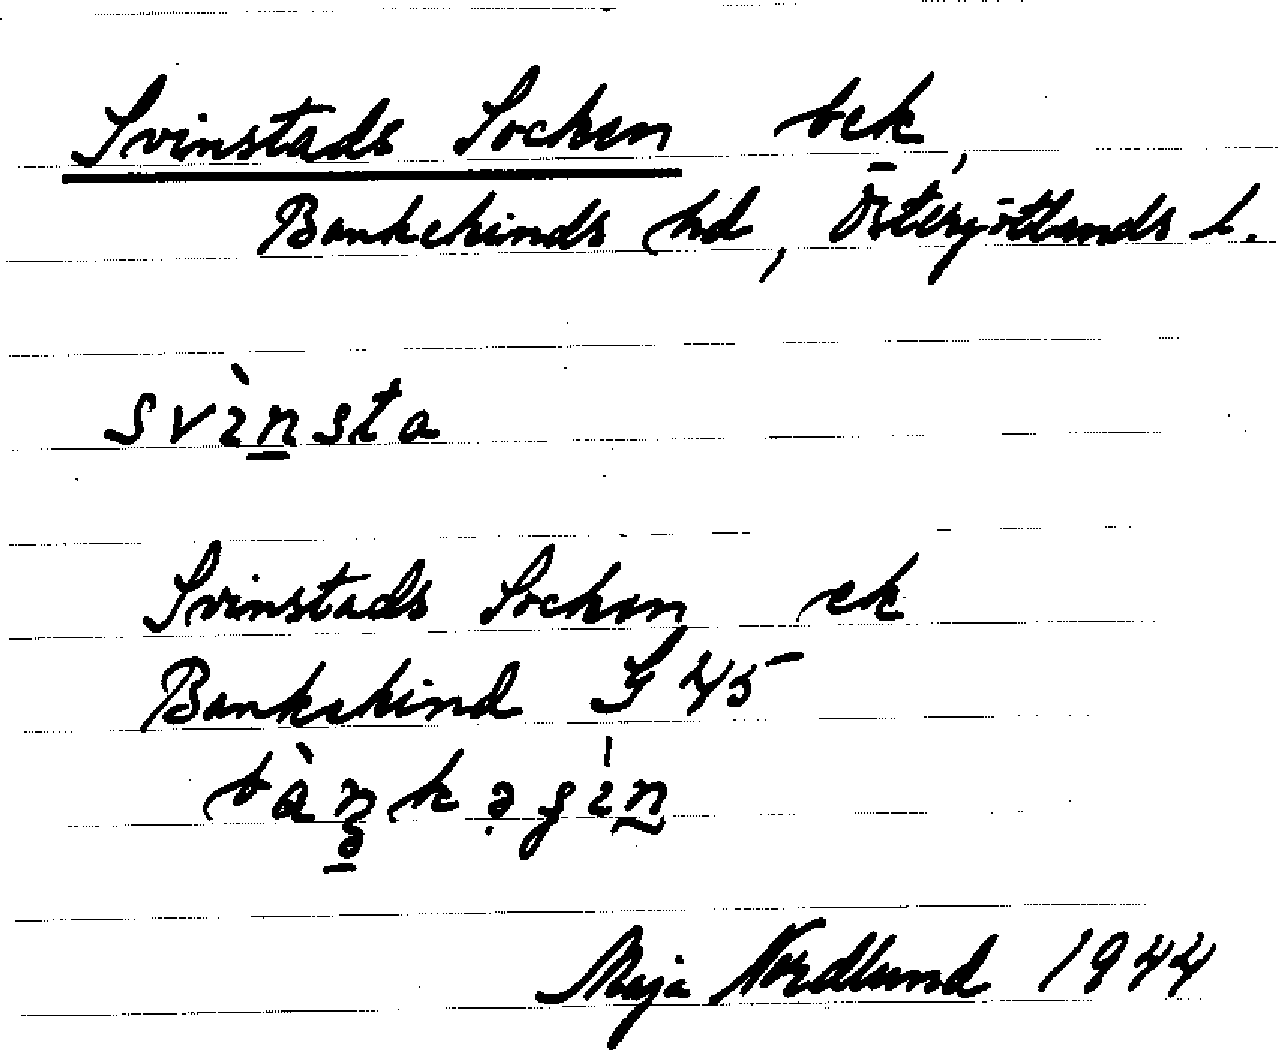 Svinstads Socken bek,
Bankekinds hd, Östergötlands l.
svìnsta
Svinstads Socken ek
Bankekind
Maja Nordlund 1944